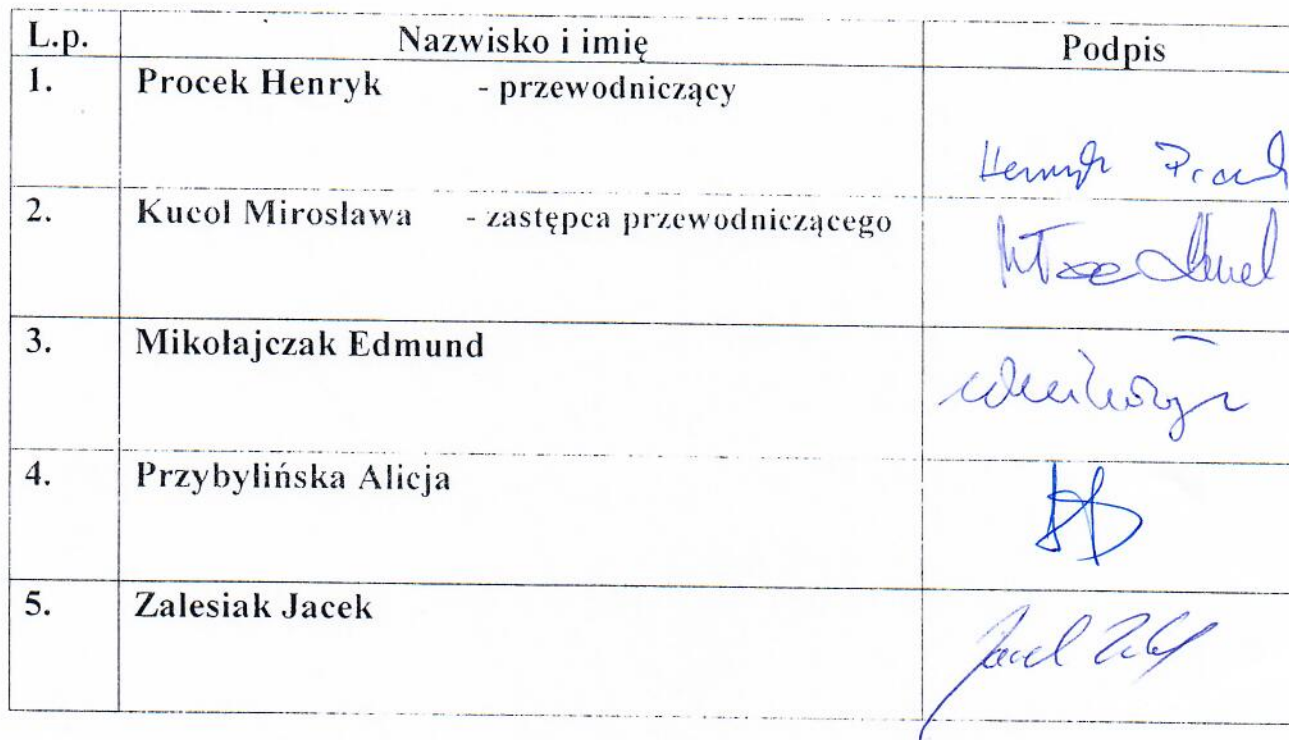 L.p. Nazwisko i imię Podpis
1. Procek Henryk - przewodniczący
Henryk
2. Kucol Mirosława - zastępca przewodniczącego
3. Mikołajczak Edmund
4. Przybylińska Alicja
5. Zalesiak Jacek
Jacek